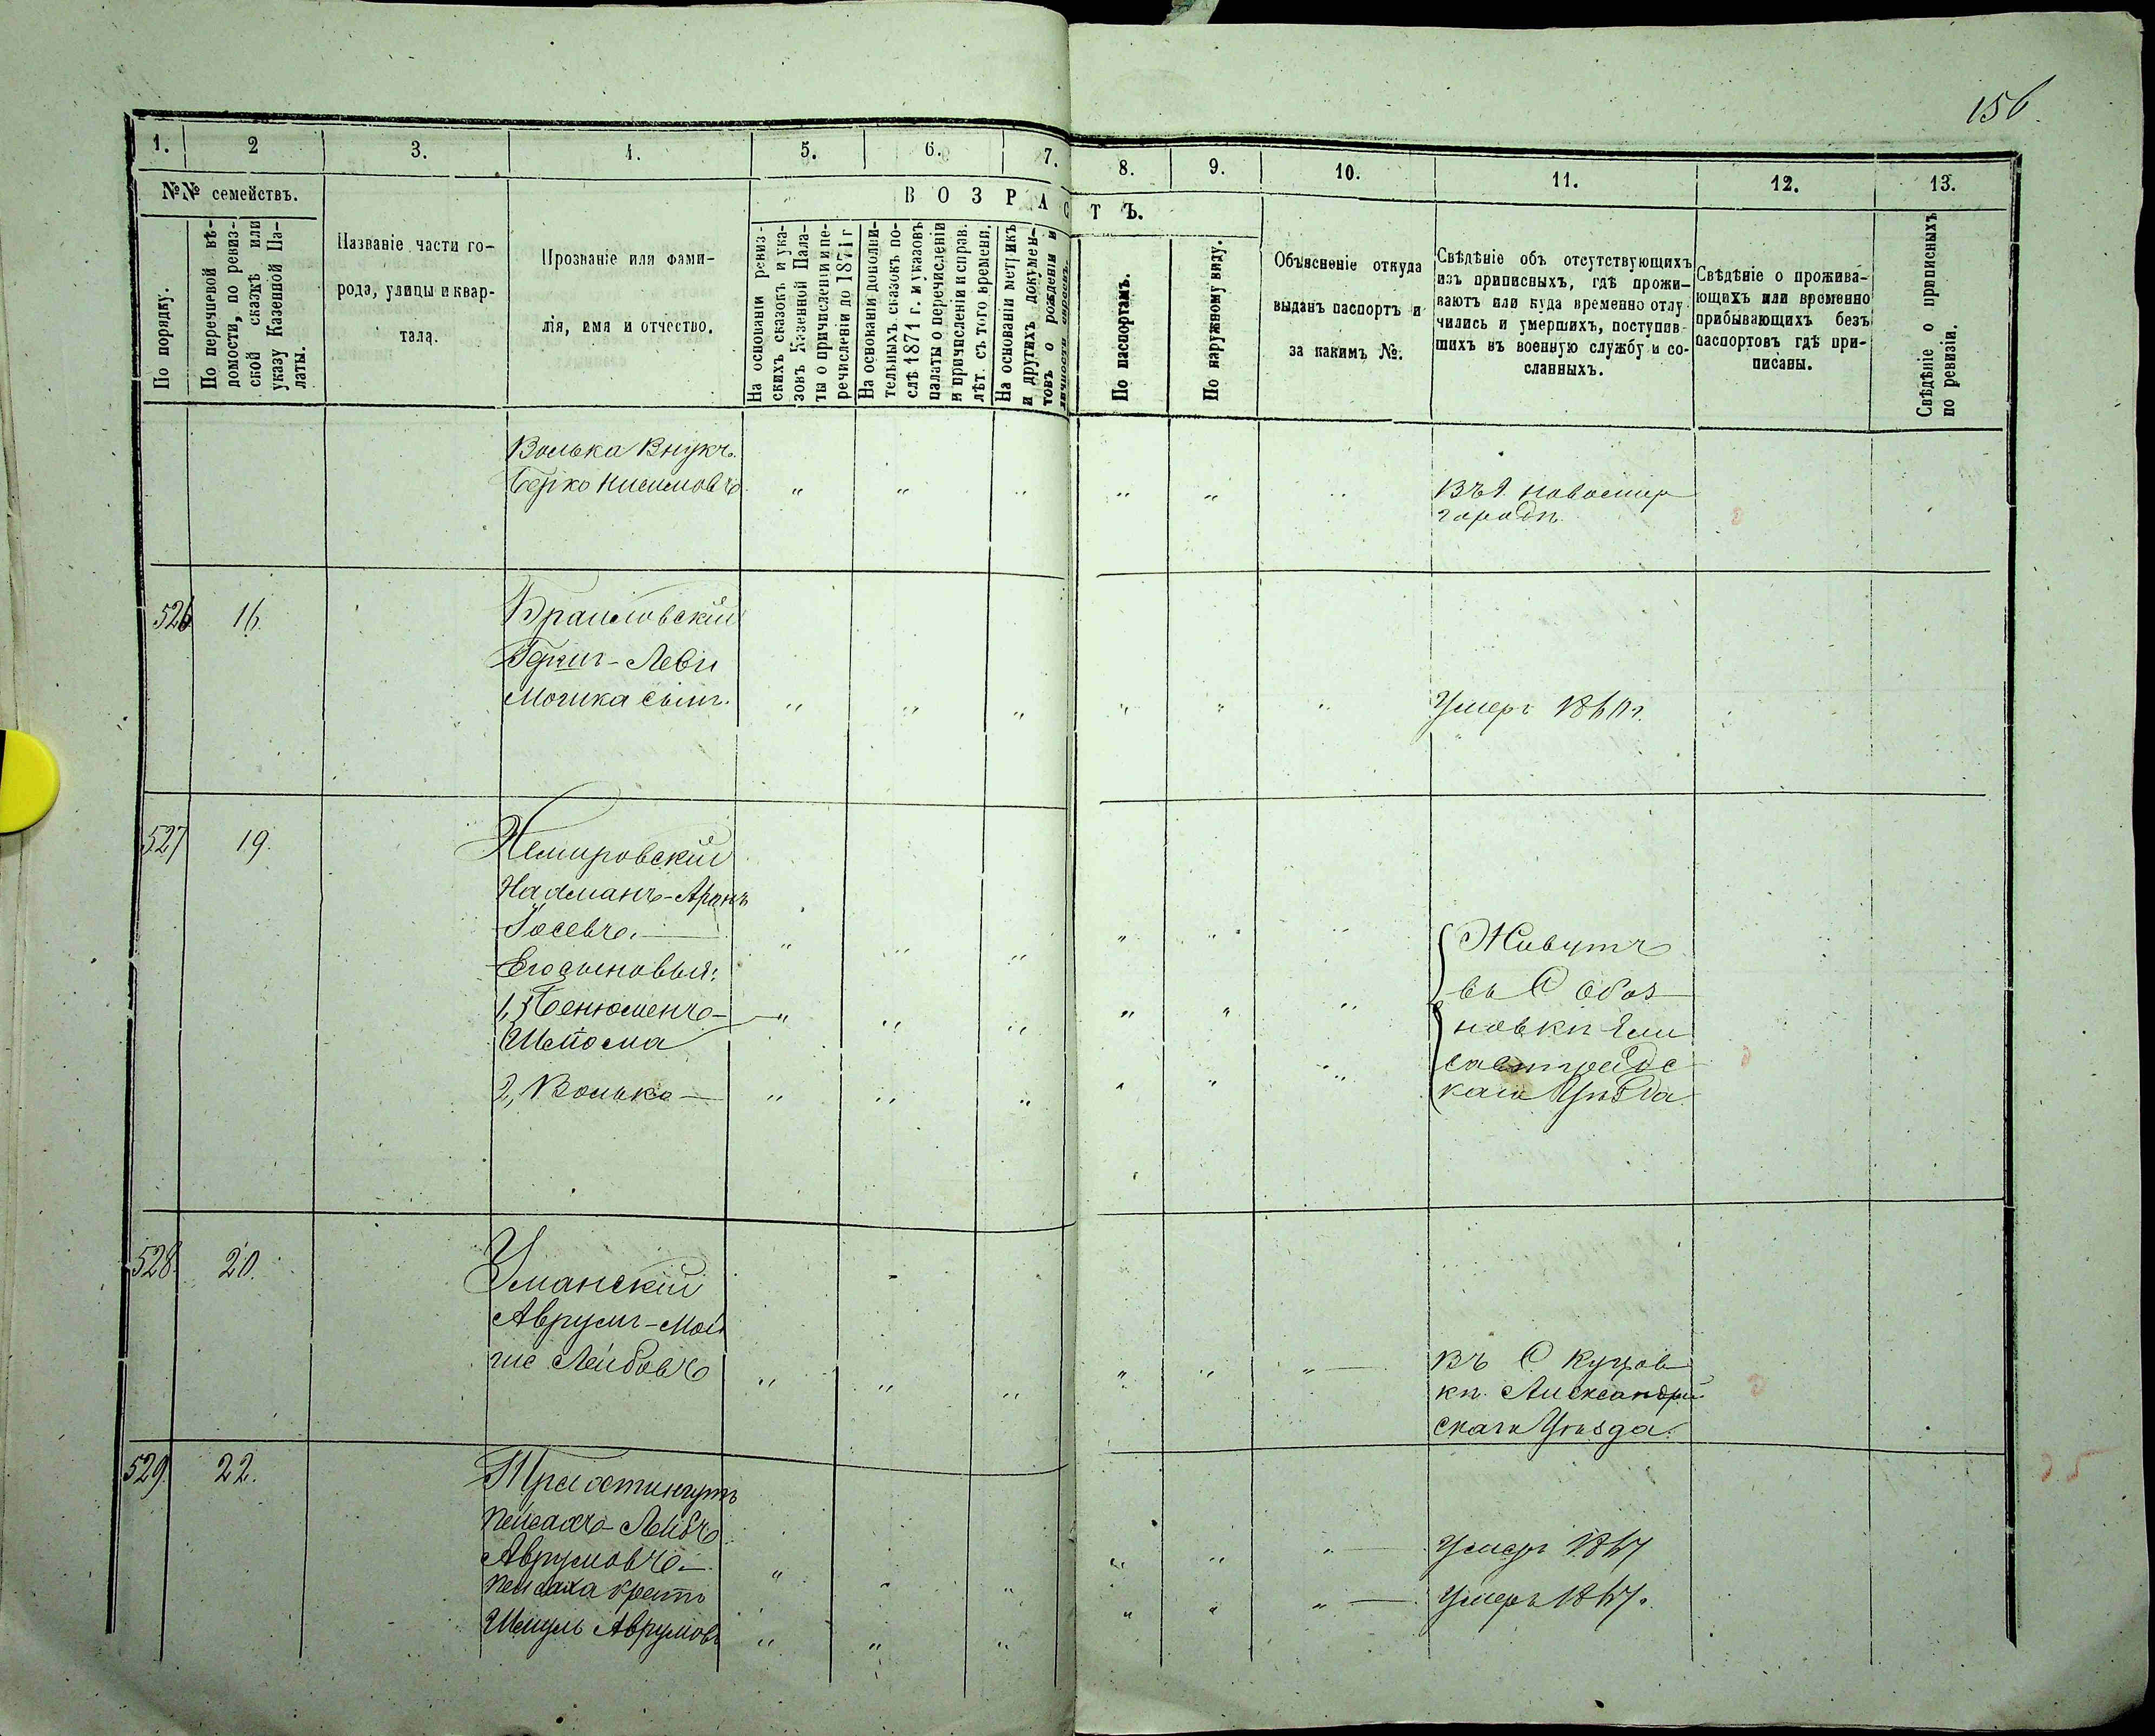 156.
1. 2 3. 4. 5. 6. 7. 8. 9. 10. 11. 12. 13.
№№ семействъ.
По порядку.
По перечневой вѣ-
домости, по ревиз-
ской сказкѣ или
указу Казенной Па-
латы.
Названіе части го-
рода, улицы и квар-
тала.
Прозваніе или фами-
лія, имя и отчество.
ВОЗРАСТЪ.
На основаніи ревиз-
скихъ сказокъ и ука-
зовъ Казенной Пала-
ты о причисленіи и пе-
речисленіи до 1871 г
На основаніи дополни-
тельныхъ сказокъ по-
слѣ 1871 г. и указовъ
палаты о перечисленіи
и причисленіи и справ.
лѣт. съ того времени.
На основаніи метрикъ
и другихъ докумен-
товъ о рожденіи и
По паспортамъ.
По наружному виду.
Объясненіе откуда
выданъ паспортъ и
за какимъ №.
Свѣдѣніе объ отсутствующихъ
изъ приписныхъ, гдѣ прожи-
ваютъ или куда временно отлу-
чились и умершихъ, поступив-
шихъ въ военную службу и со-
сланныхъ.
Свѣдѣніе о прожива-
ющихъ или временно
прибывающихъ безъ
паспортовъ гдѣ при-
писаны.
Свѣдѣніе о приписныхъ
по ревизіи.
Волька Внукъ
Берко Нисимовъ " " " " " " Въ Новомир
городѣ
526 16. Браиловскій
Герш-Леви
Мошка сынъ. " " " " " " Умеръ 1860 г.
527 19. Немировскій
Нахманъ-Аронъ
Іосевъ. " " " " " " Живутъ
Его сыновья:
въ С Обоз
1, Бенюменъ- " " " " " "
новки Ели
Шепсма
саветградс
2, Волько " " " " " " каго Уѣзда
528. 20. Уманскій
Аврумъ-Мой
ше Лейбовъ " " " " " " Въ С Куцов
ки Александрій
скаго Уѣзда.
529. 22.
Пейсахъ Лейбъ
Аврумовъ " " " " " " Умеръ 1867
Пейсаха братъ
Шмуль Аврумовъ " " " " " " Умеръ 1867.